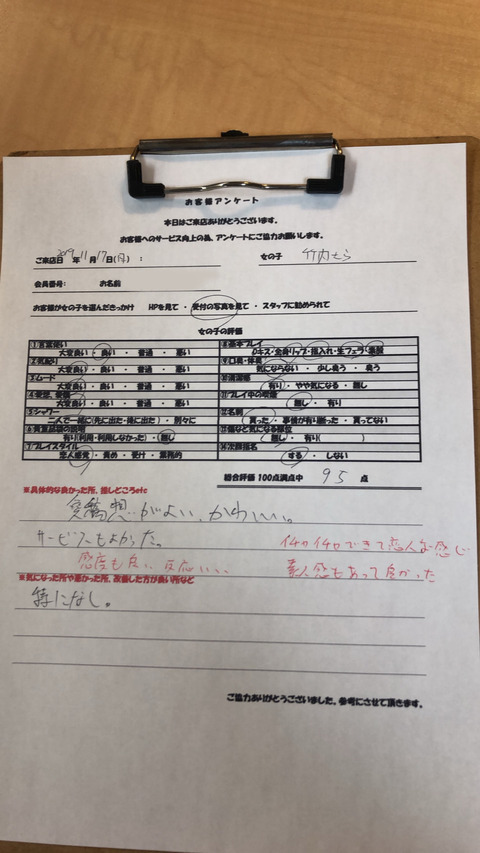 お客様アンケート
本日はご来店ありがとうございます。
お客様へのサービス向上の為、アンケートにご協力お願いします。
ご来店日 2019年 11月 17日(月) : 女の子 竹内
会員番号: お名前
お客様が女の子を選んだきっかけ HPを見て ・ 受付の写真を見て ・ スタッフに勧められて
女の子の評価
①言葉使い
大変良い ・ 良い ・ 普通 ・ 悪い
②気配り
大変良い ・ 良い ・ 普通 ・ 悪い
③ムード
大変良い ・ 良い ・ 普通 ・ 悪い
④
大変良い ・ 良い ・ 普通 ・ 悪い
⑤シャワー
二人で一緒に(先に出た・後に出た) ・ 別々に
⑥
有り(利用・利用しなかった) ・ 無し
⑦プレイスタイル
恋人感覚 ・ 責め ・ 受け ・ 業務的
⑧基本プレイ
Dキス・全身リップ・指入れ・生フェラ・素股
⑨口臭・体臭
気にならない ・ 少し臭う ・ 臭う
⑩清潔感
有り ・ やや気になる ・ 無し
⑪プレイ中の
無し ・ 有り
⑫名刺
貰った ・ 事情が有り断った ・ 貰ってない
⑬
無し ・ 有り( )
⑭次回指名
する ・ しない
総合評価 100点満点中 95 点
※具体的な良かった所、推しどころetc
愛嬌 がよい、かわいい。
サービスもよかった。
イチャイチャできて恋人な感じ
感度も良い 反応いい、
素人感もあって良かった
※気になった所や悪かった所、改善した方が良い所など
特になし。
ご協力ありがとうございました。参考にさせて頂きます。